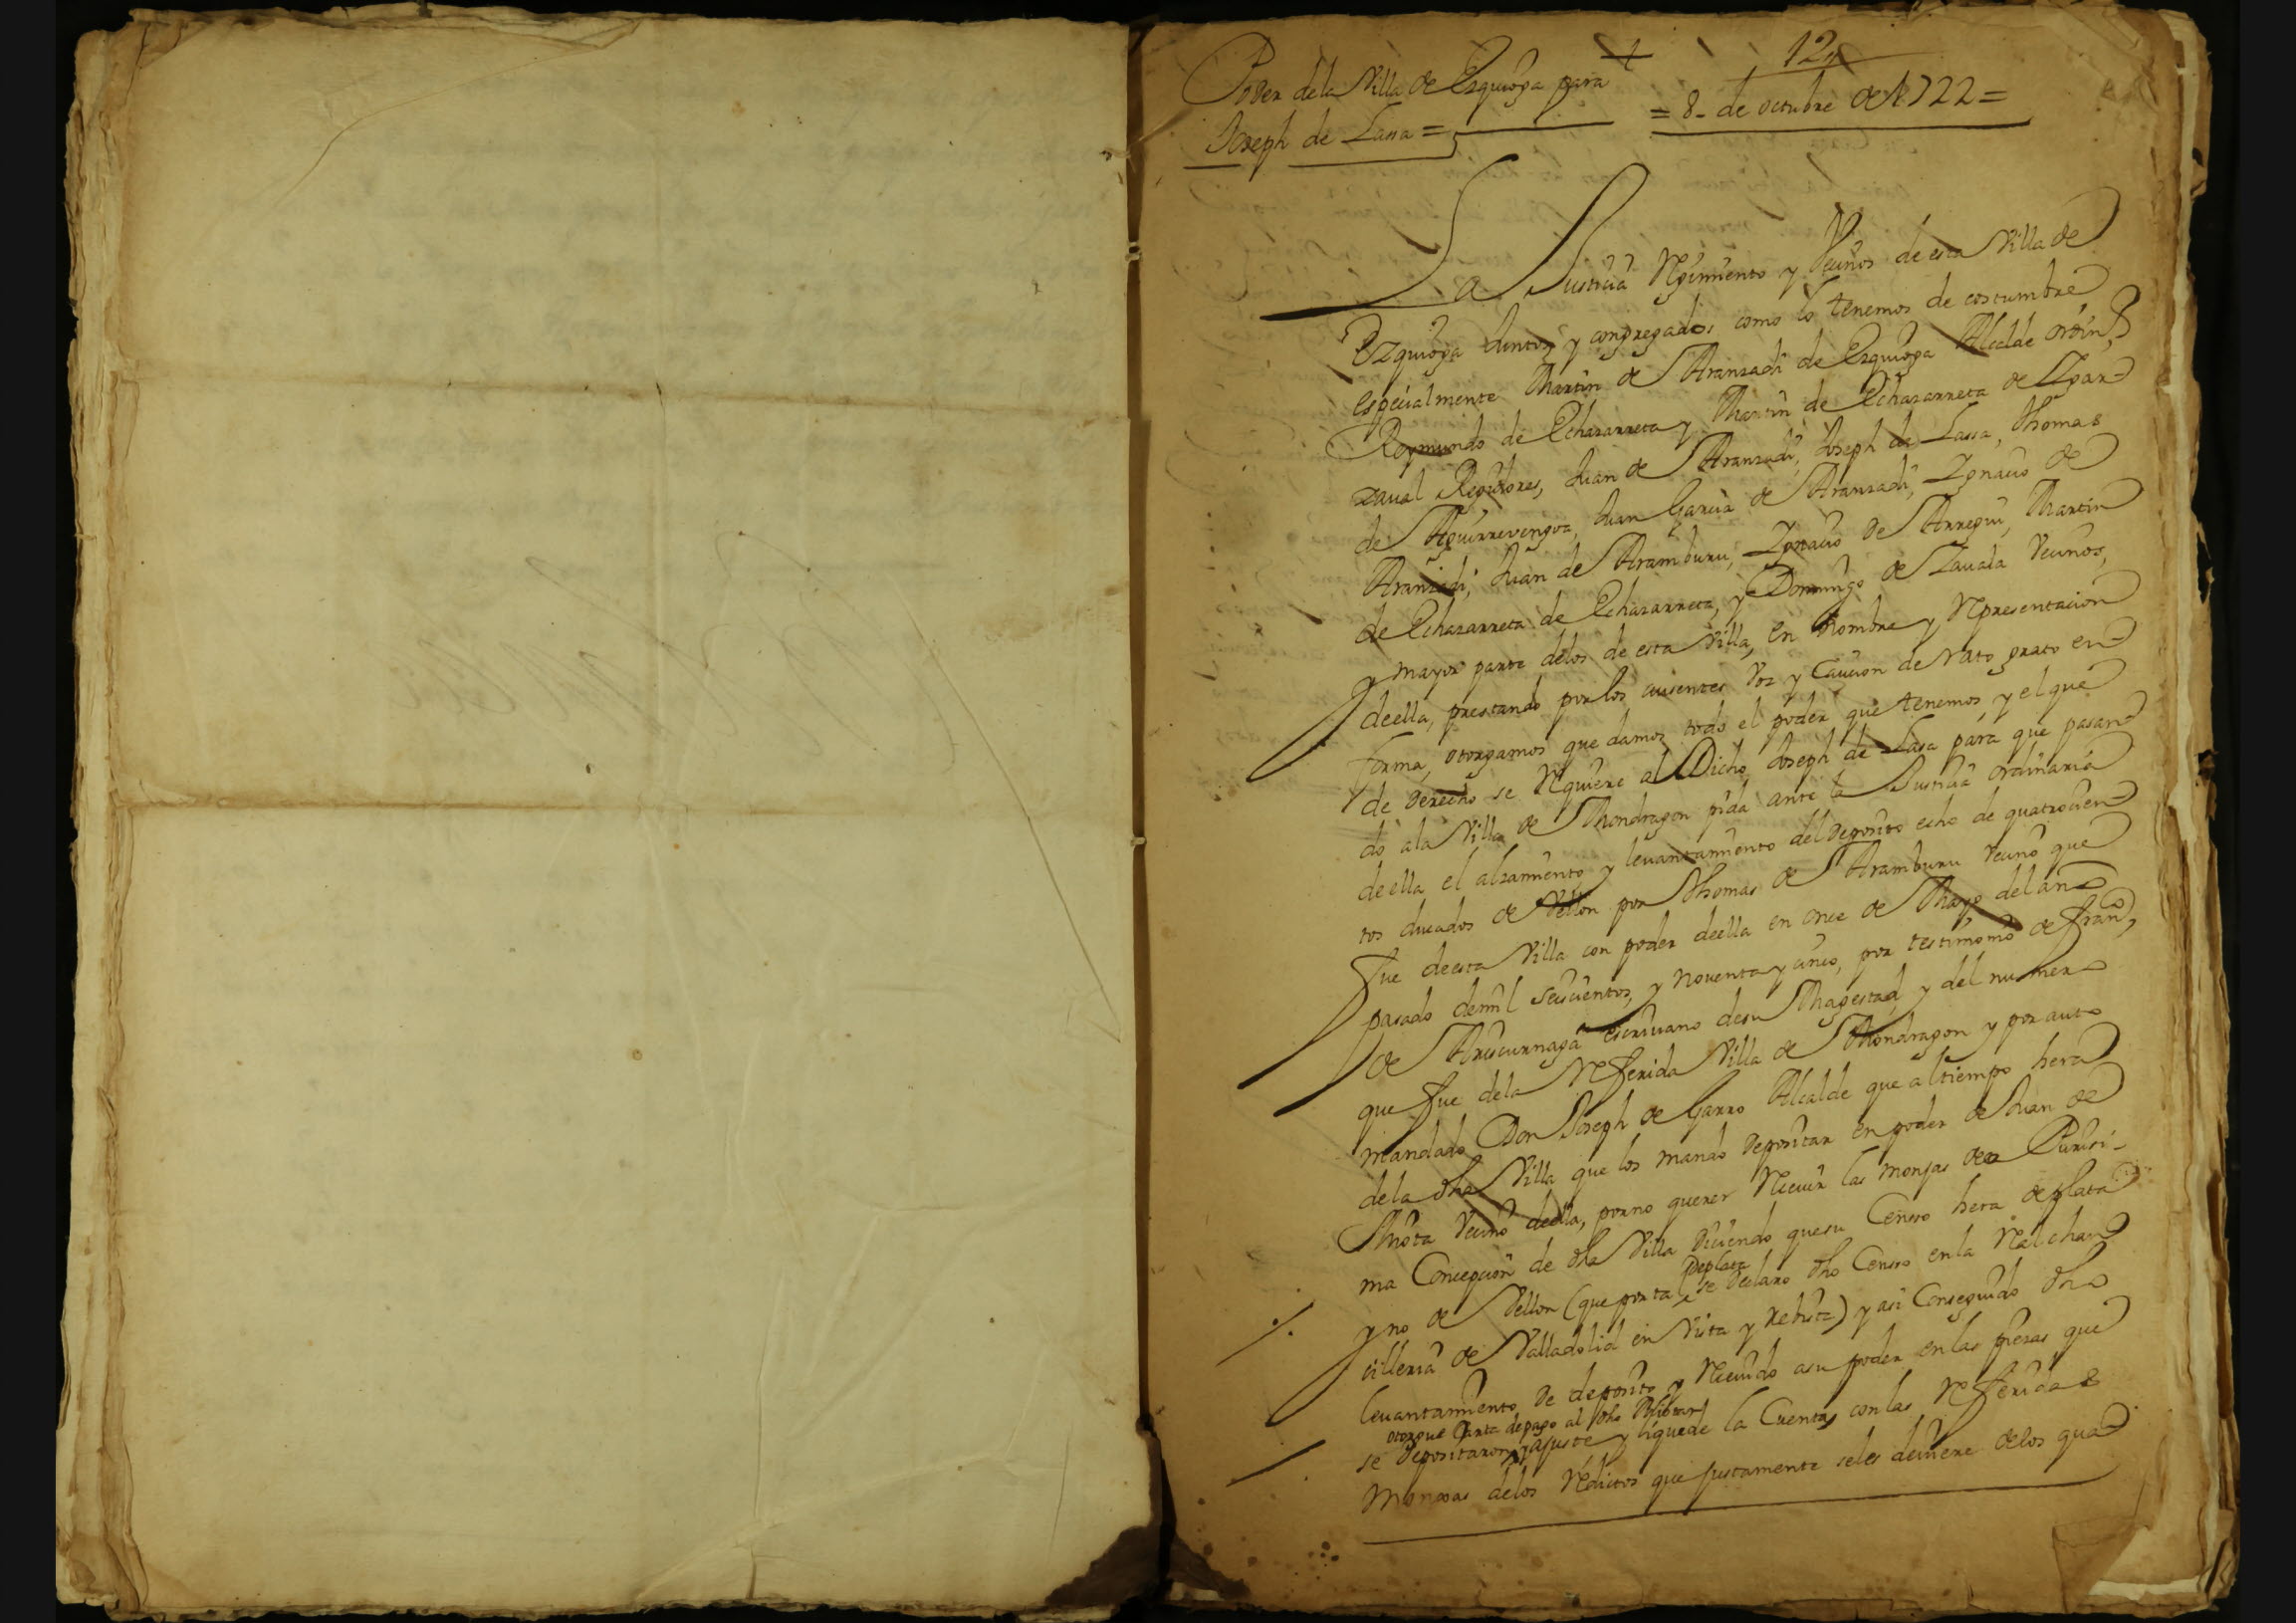 Poder dela Villa de Ezquioga para
Joseph de Lassa =
124
= 8 - de octubre de 1722 =
La Justicia Regimiento y Vecinos de esta Villa de
Ezquioga Juntos y congregados como lo tenemos de costumbre
especialmente Martin de Aranzadi de Ezquioga Alcalde ordin,
Raymundo de Echazarreta y Martin de Echazarreta de Ygar-
zaual Regidores, Juan de Aranzadi, Joseph de Lassa, Thomas
de Aguirrevengoa, Juan Garcia de Aranzadi, Ygnacio de
Aranzadi, Juan de Aramburu, Ygnacio de Arregui, Martin
de Echazarreta de Echazarreta, y Domingo de Zauala Vecinos,
y mayor parte delos de esta Villa, en nombre y Representacion
deella, prestando por los ausentes Voz y Caucion de rato grato en
forma, otorgamos que damos todo el poder que tenemos, y el que
de derecho se Requiere al Dicho Joseph de Lasa para que pasan-
do ala Villa de Mondragon pida ante la Justicia ordinaria
deella el alzamiento y leuantamiento del deposito echo de quatrocien-
tos ducados de Vellon por Thomas de Aramburu Vecino que
fue deesta Villa con poder deella en once de Mayo del año
pasado demil seiscientos y nouenta y cinco, por testimonio de fran,
de Ariscurnaga escriuano desu Magestad, y del numero
que fue dela Referida Villa de Mondragon y por auto
mandado Don Joseph de Garro Alcalde que altiempo hera
dela dha Villa que los mando Depositar en poder de Juan de
Mota Vecino deella, porno querer Reciuir las monjas dela Purisi-
ma Concepcion de dha Villa diciendo quesu Censo hera deplata
y no de Vellon (que por tal deplata se declaro dho Censo enla Real chan-
cilleria de Valladolid en Vista y Rebista) y asi Conseguido dho
leuantamiento de deposito y Reciuido asu poder en las piezas que
otorgue Carta depago al dho
se depositaron, y ajuste y liquede la Cuentas conlas Referidas
Monxas delos Reditos que justamente seles deuiere delos qua-